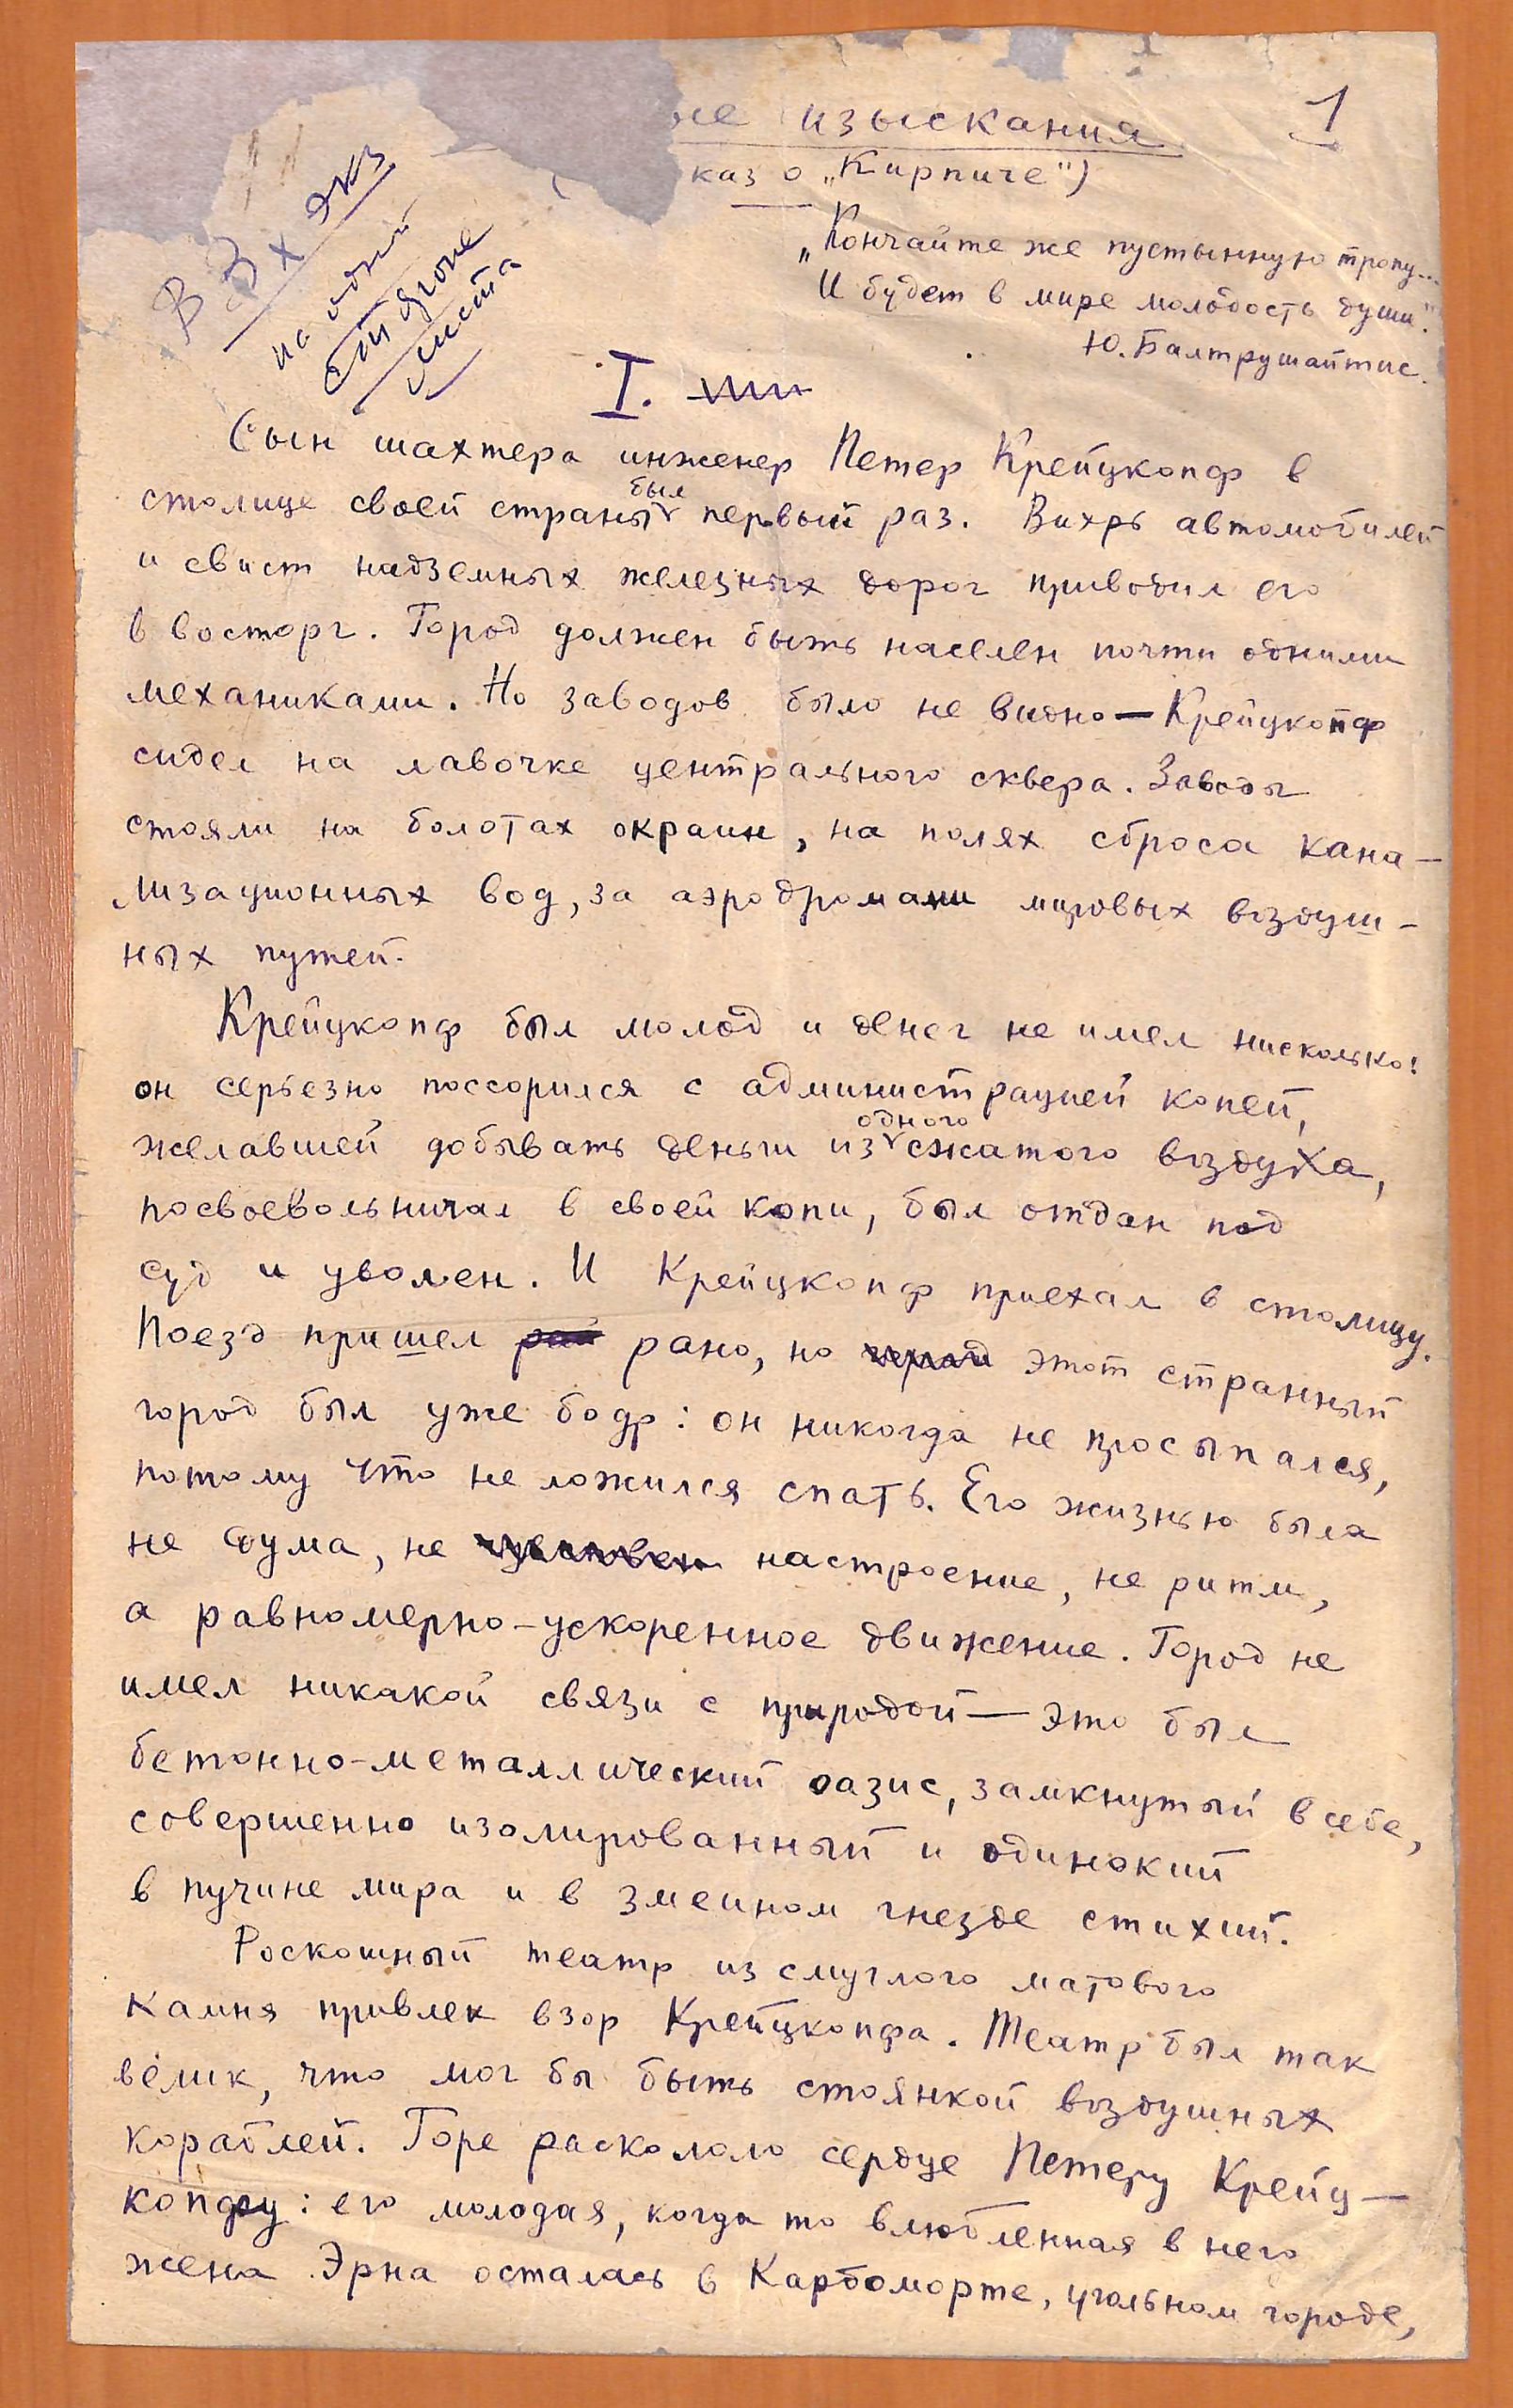 ые изыскания
1
каз о „Кирпиче")
В 3 х экз
на одной
стороне
листа
„Кончайте же пустынную тропу...
И будет в мире молодость души".
Ю. Балтрушайтис.
I.
Сын шахтера инженер Петер Крейцкопф в
столице своей страны был первый раз. Вихрь автомобилей
и свист надземных железных дорог приводил его
в восторг. Город должен быть населен почти одними
механиками. Но заводов было не видно — Крейцкопф
сидел на лавочке центрального сквера. Заводы
стояли на болотах окраин, на полях сброса кана-
лизационных вод, за аэродромами мировых воздуш-
ных путей.
Крейцкопф был молод и денег не имел нисколько!
он серьезно поссорился с администрацией копей,
желавшей добывать деньги из одного сжатого воздуха,
посвоевольничал в своей копи, был отдан под
суд и уволен. И Крейцкопф приехал в столицу.
Поезд пришел рано, но этот странный
город был уже бодр: он никогда не просыпался,
потому что не ложился спать. Его жизнью была
не дума, не настроение, не ритм,
а равномерно-ускоренное движение. Город не
имел никакой связи с природой — это был
бетонно-металлический оазис, замкнутый в себе,
совершенно изолированный и одинокий
в пучине мира и в змеином гнезде стихий.
Роскошный театр из смуглого матового
камня привлек взор Крейцкопфа. Театр был так
велик, что мог бы быть стоянкой воздушных
кораблей. Горе раскололо сердце Петеру Крейц-
копфу: его молодая, когда то влюбленная в него
жена Эрна осталась в Карбоморте, угольном городе,